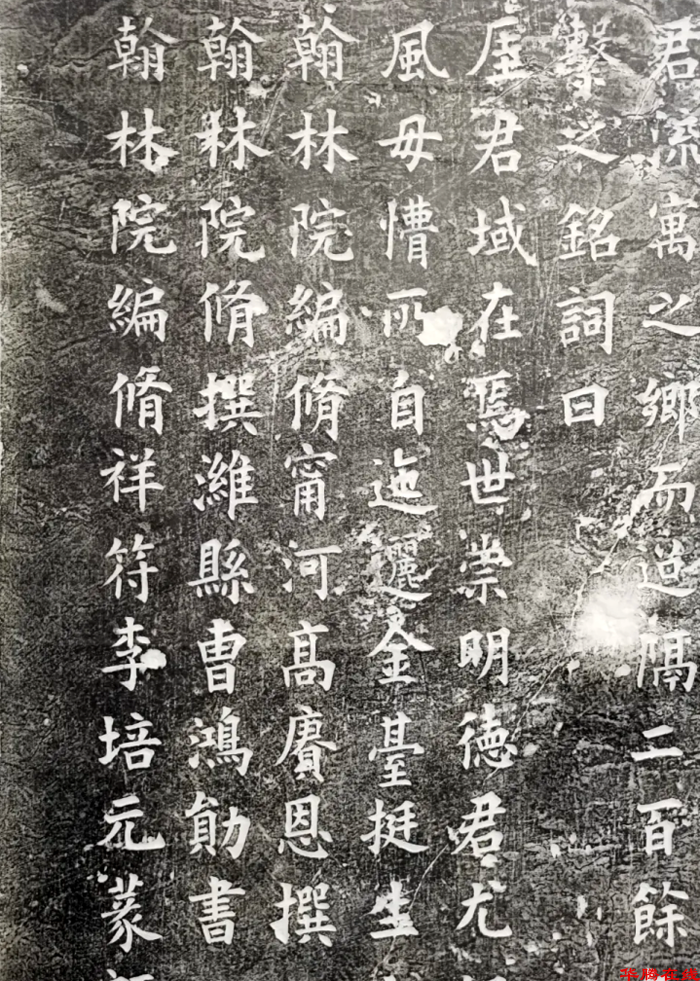 君流寓之鄉而迢隔二百餘
繫之銘詞曰
君域在焉世崇明德君尤
風毋慒所自迤邐金臺挺生
翰林院編脩甯河高賡恩撰
翰林院脩撰濰縣曹鴻勛書
翰林院編脩祥符李培元篆
华腾在线